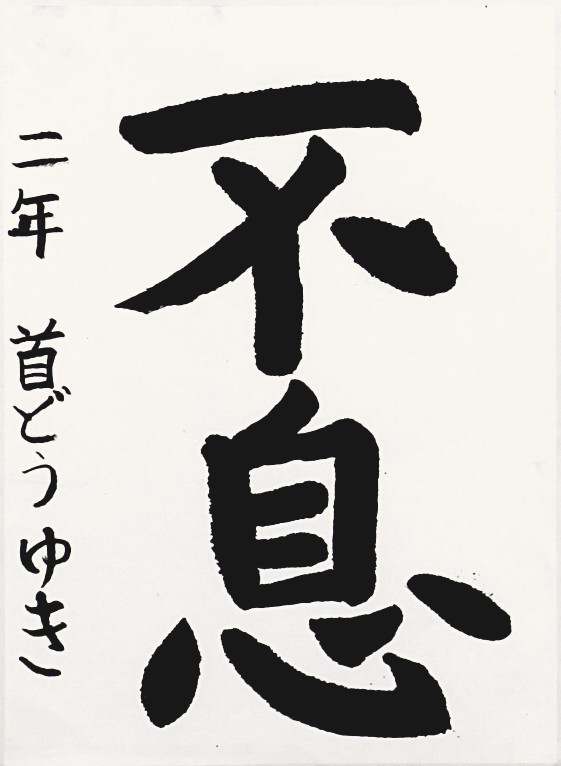 不息
二年 首どうゆき